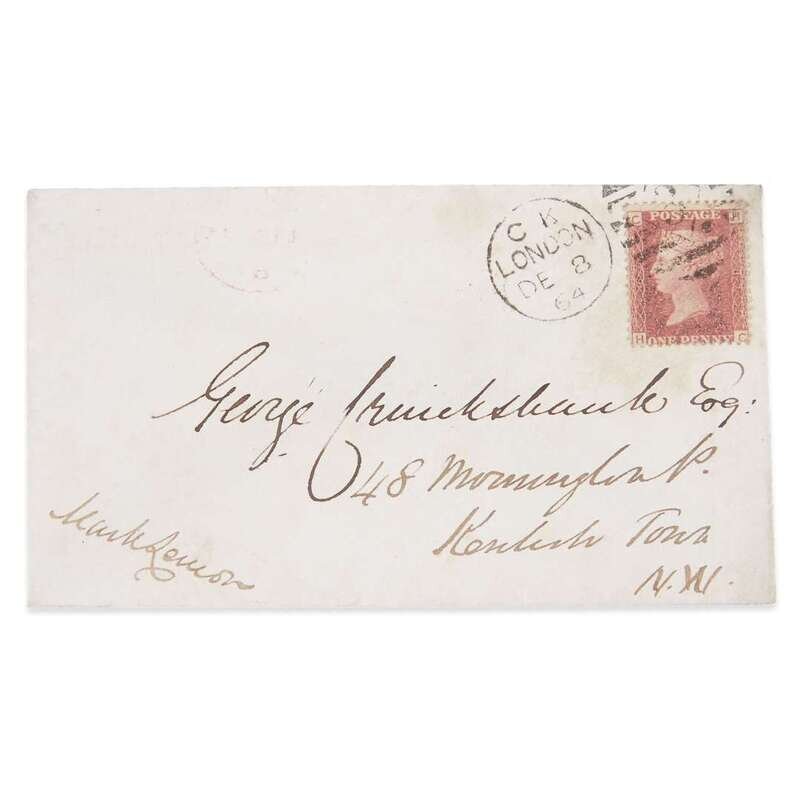 C K
LONDON
DE 8
64
C H
POSTAGE
ONE PENNY
H C
George Cruickshank Esq:
48 Mornington P.
Kentish Town
N.W.
Mark Lemon